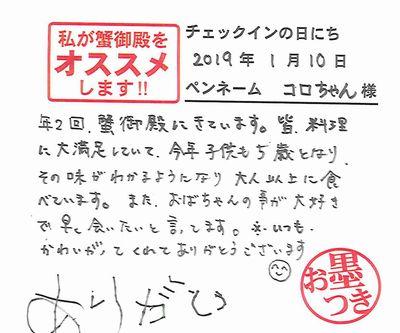 私が蟹御殿を
オススメ
します!!
チェックインの日にち
2019年 1月10日
ペンネーム コロちゃん 様
年2回、蟹御殿にきています。皆、料理
に大満足していて、今年子供も5歳となり、
その味がわかるようになり 大人以上に食
べています。また、おばちゃんの事が大好き
で早く会いたいと言ってます。いつも
かわいがってくれてありがとうございます
ありがとう
お墨
つき